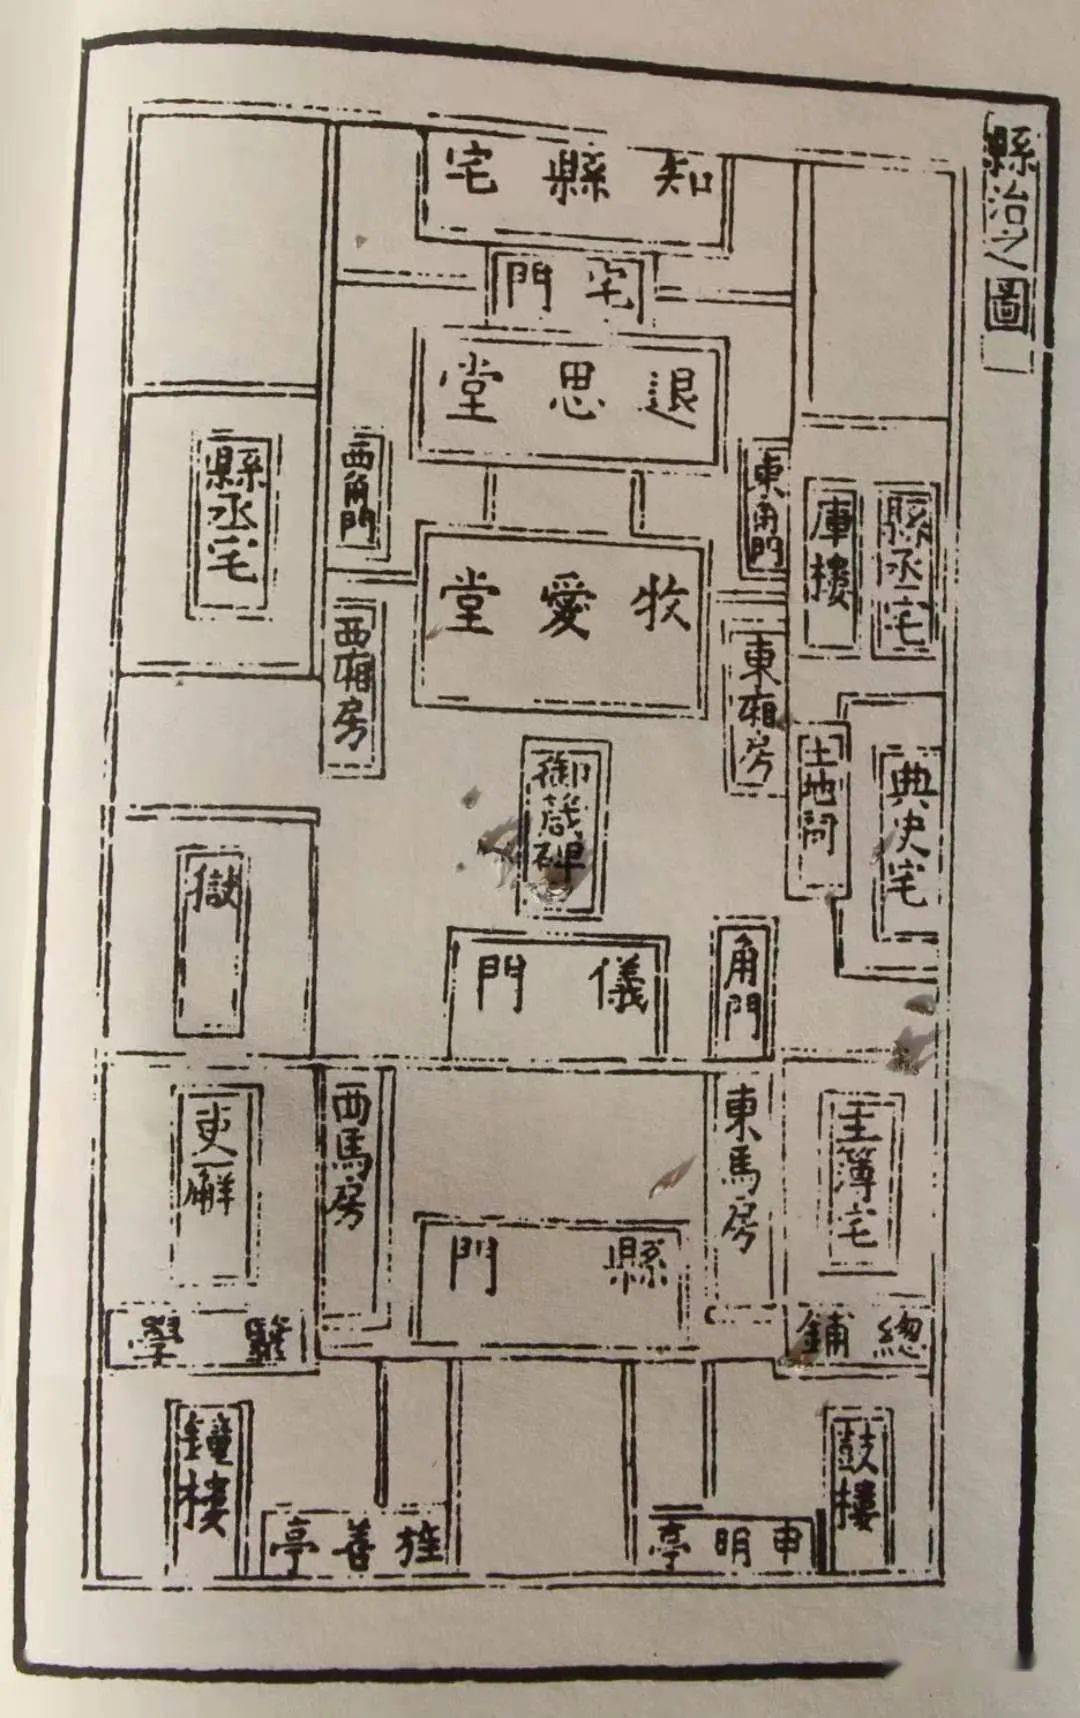 縣治之圖
知縣宅
宅門
退思堂
東角門
西角門
庫樓
縣丞宅
縣丞宅
牧愛堂
東廂房
西廂房
土地祠
典史宅
御箴碑
獄
儀門
角門
東馬房
西馬房
主簿宅
吏廨
縣門
總鋪
學
鼓樓
鐘樓
申明亭
旌善亭